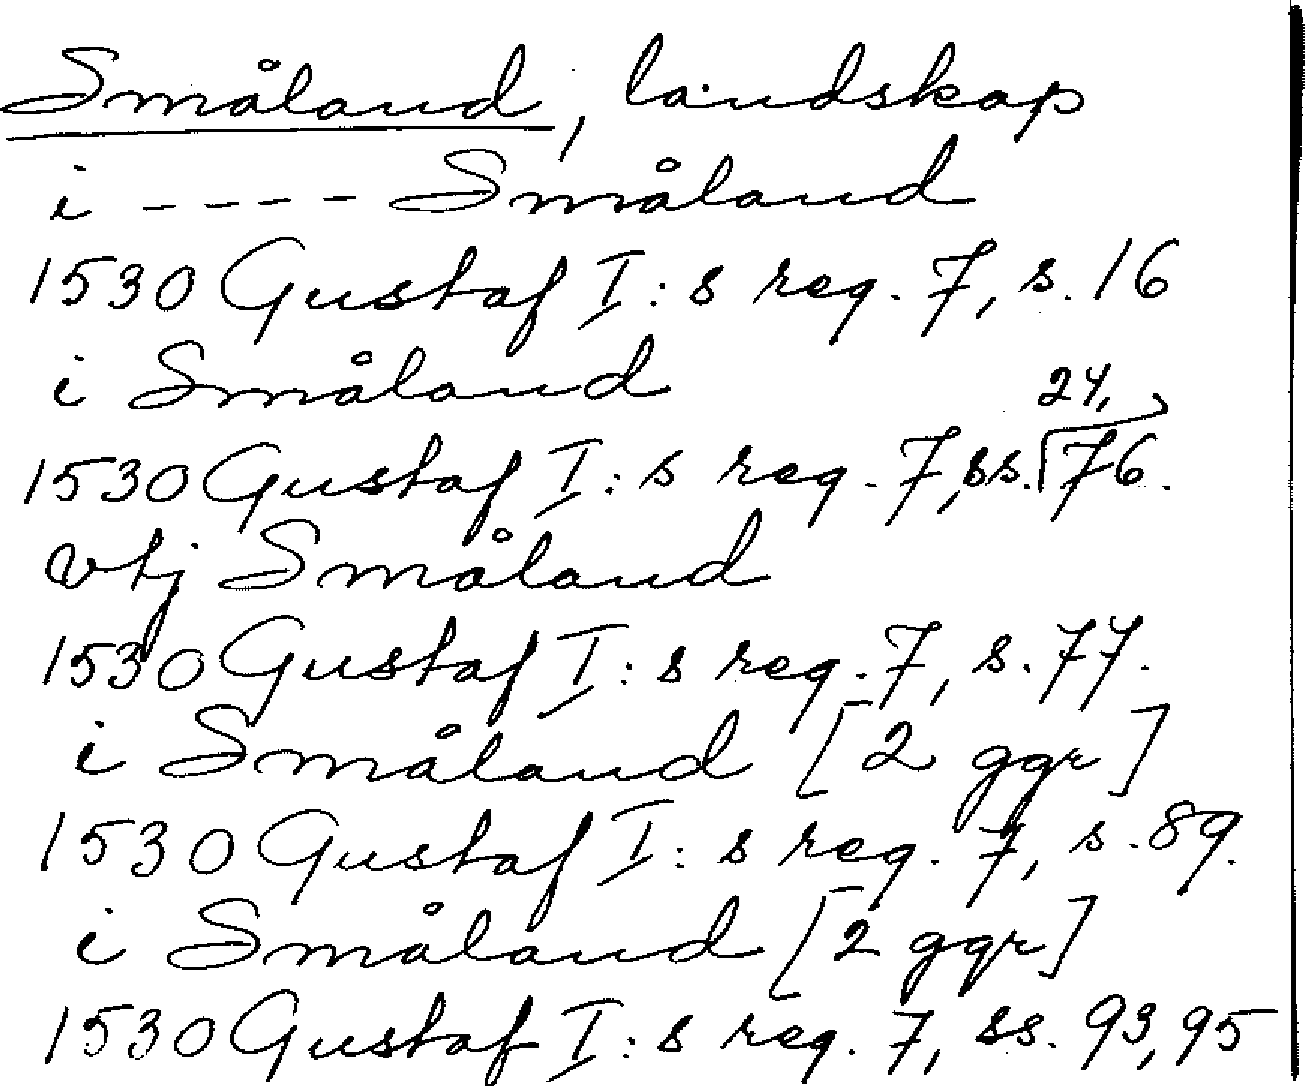 Småland, landskap
i ---- Småland
1530 Gustaf I:s reg. 7, s. 16
i Småland
1530 Gustaf I:s reg. 7, ss. 24, 76.
vtj Småland
1530 Gustaf I:s reg. 7, s. 77.
i Småland [2 ggr]
1530 Gustaf I:s reg. 7, s. 89.
i Småland [2 ggr]
1530 Gustaf I:s reg. 7, ss. 93, 95